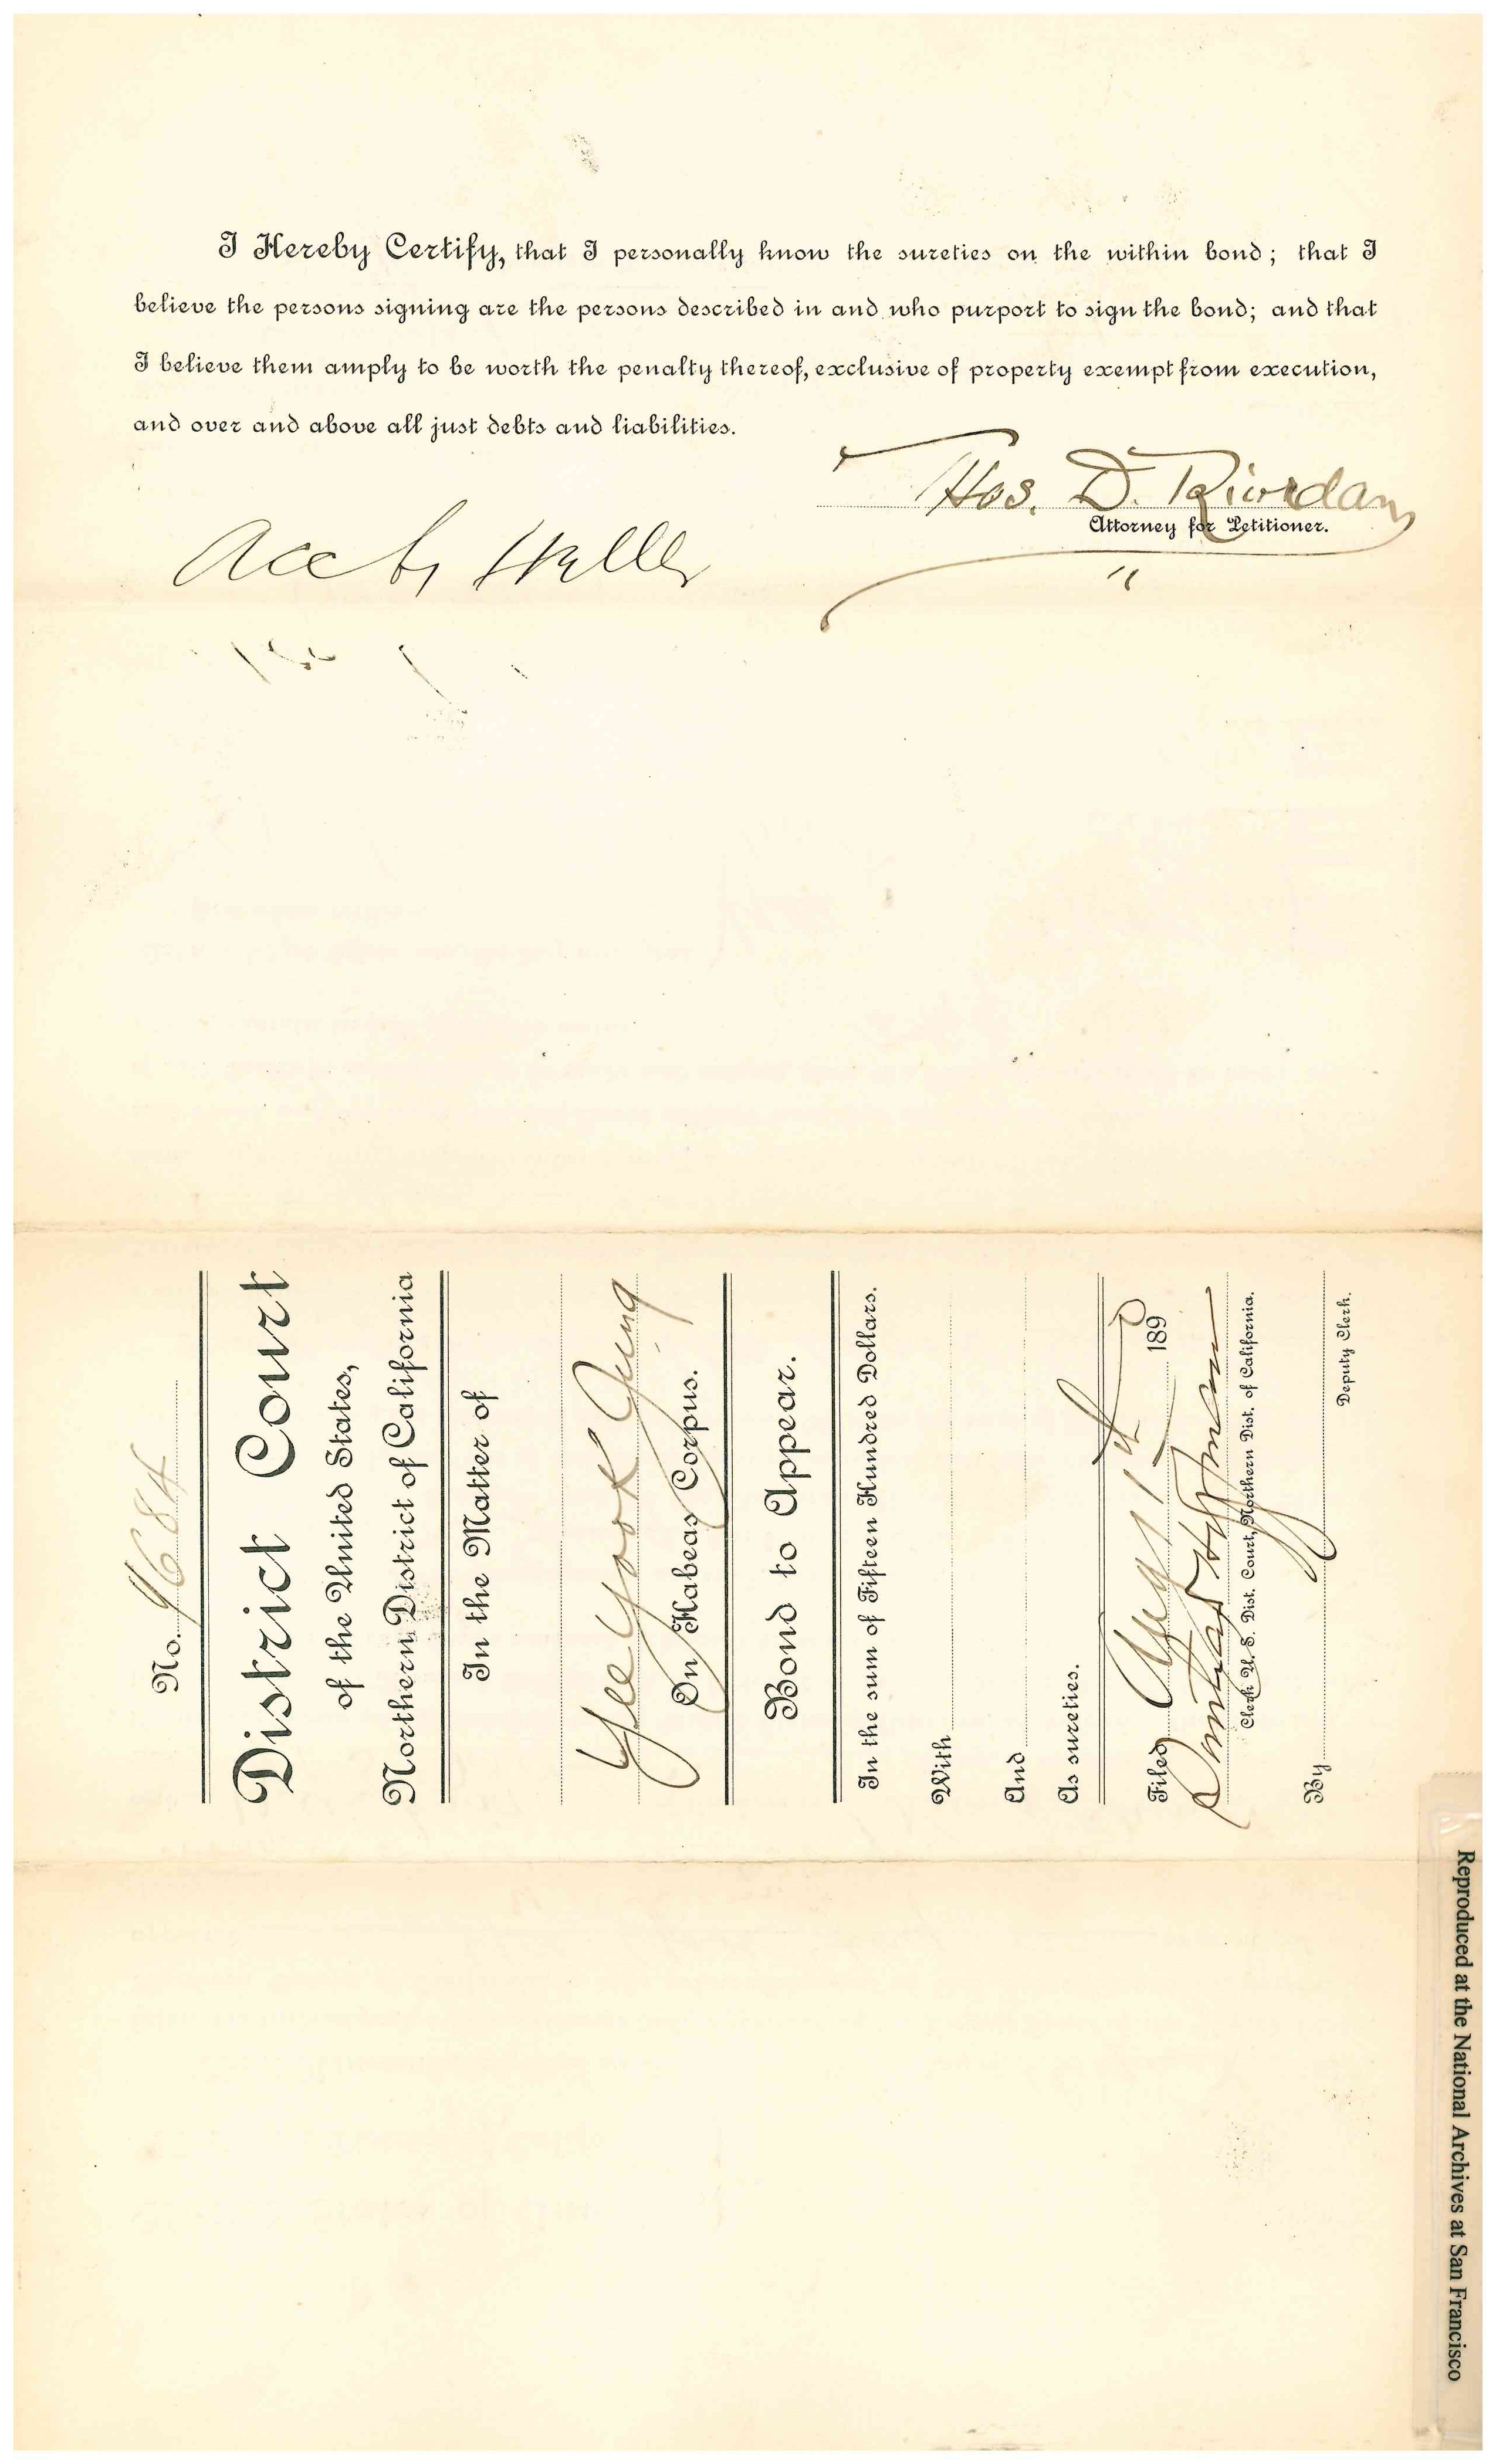 I Hereby Certify, that I personally know the sureties on the within bond; that I
believe the persons signing are the persons described in and who purport to sign the bond; and that
I believe them amply to be worth the penalty thereof, exclusive of property exempt from execution,
and over and above all just debts and liabilities.
Thos. D. Riordan
Attorney for Petitioner.
No. 9684
District Court
of the United States,
Northern District of California
In the Matter of
Yee Yook Jung
On Habeas Corpus.
Bond to Appear.
In the sum of Fifteen Hundred Dollars.
With
And
As sureties.
Filed Aug 1st 189
Southard Hoffman
Clerk U. S. Dist. Court, Northern Dist. of California.
By
Deputy Clerk.
Reproduced at the National Archives at San Francisco